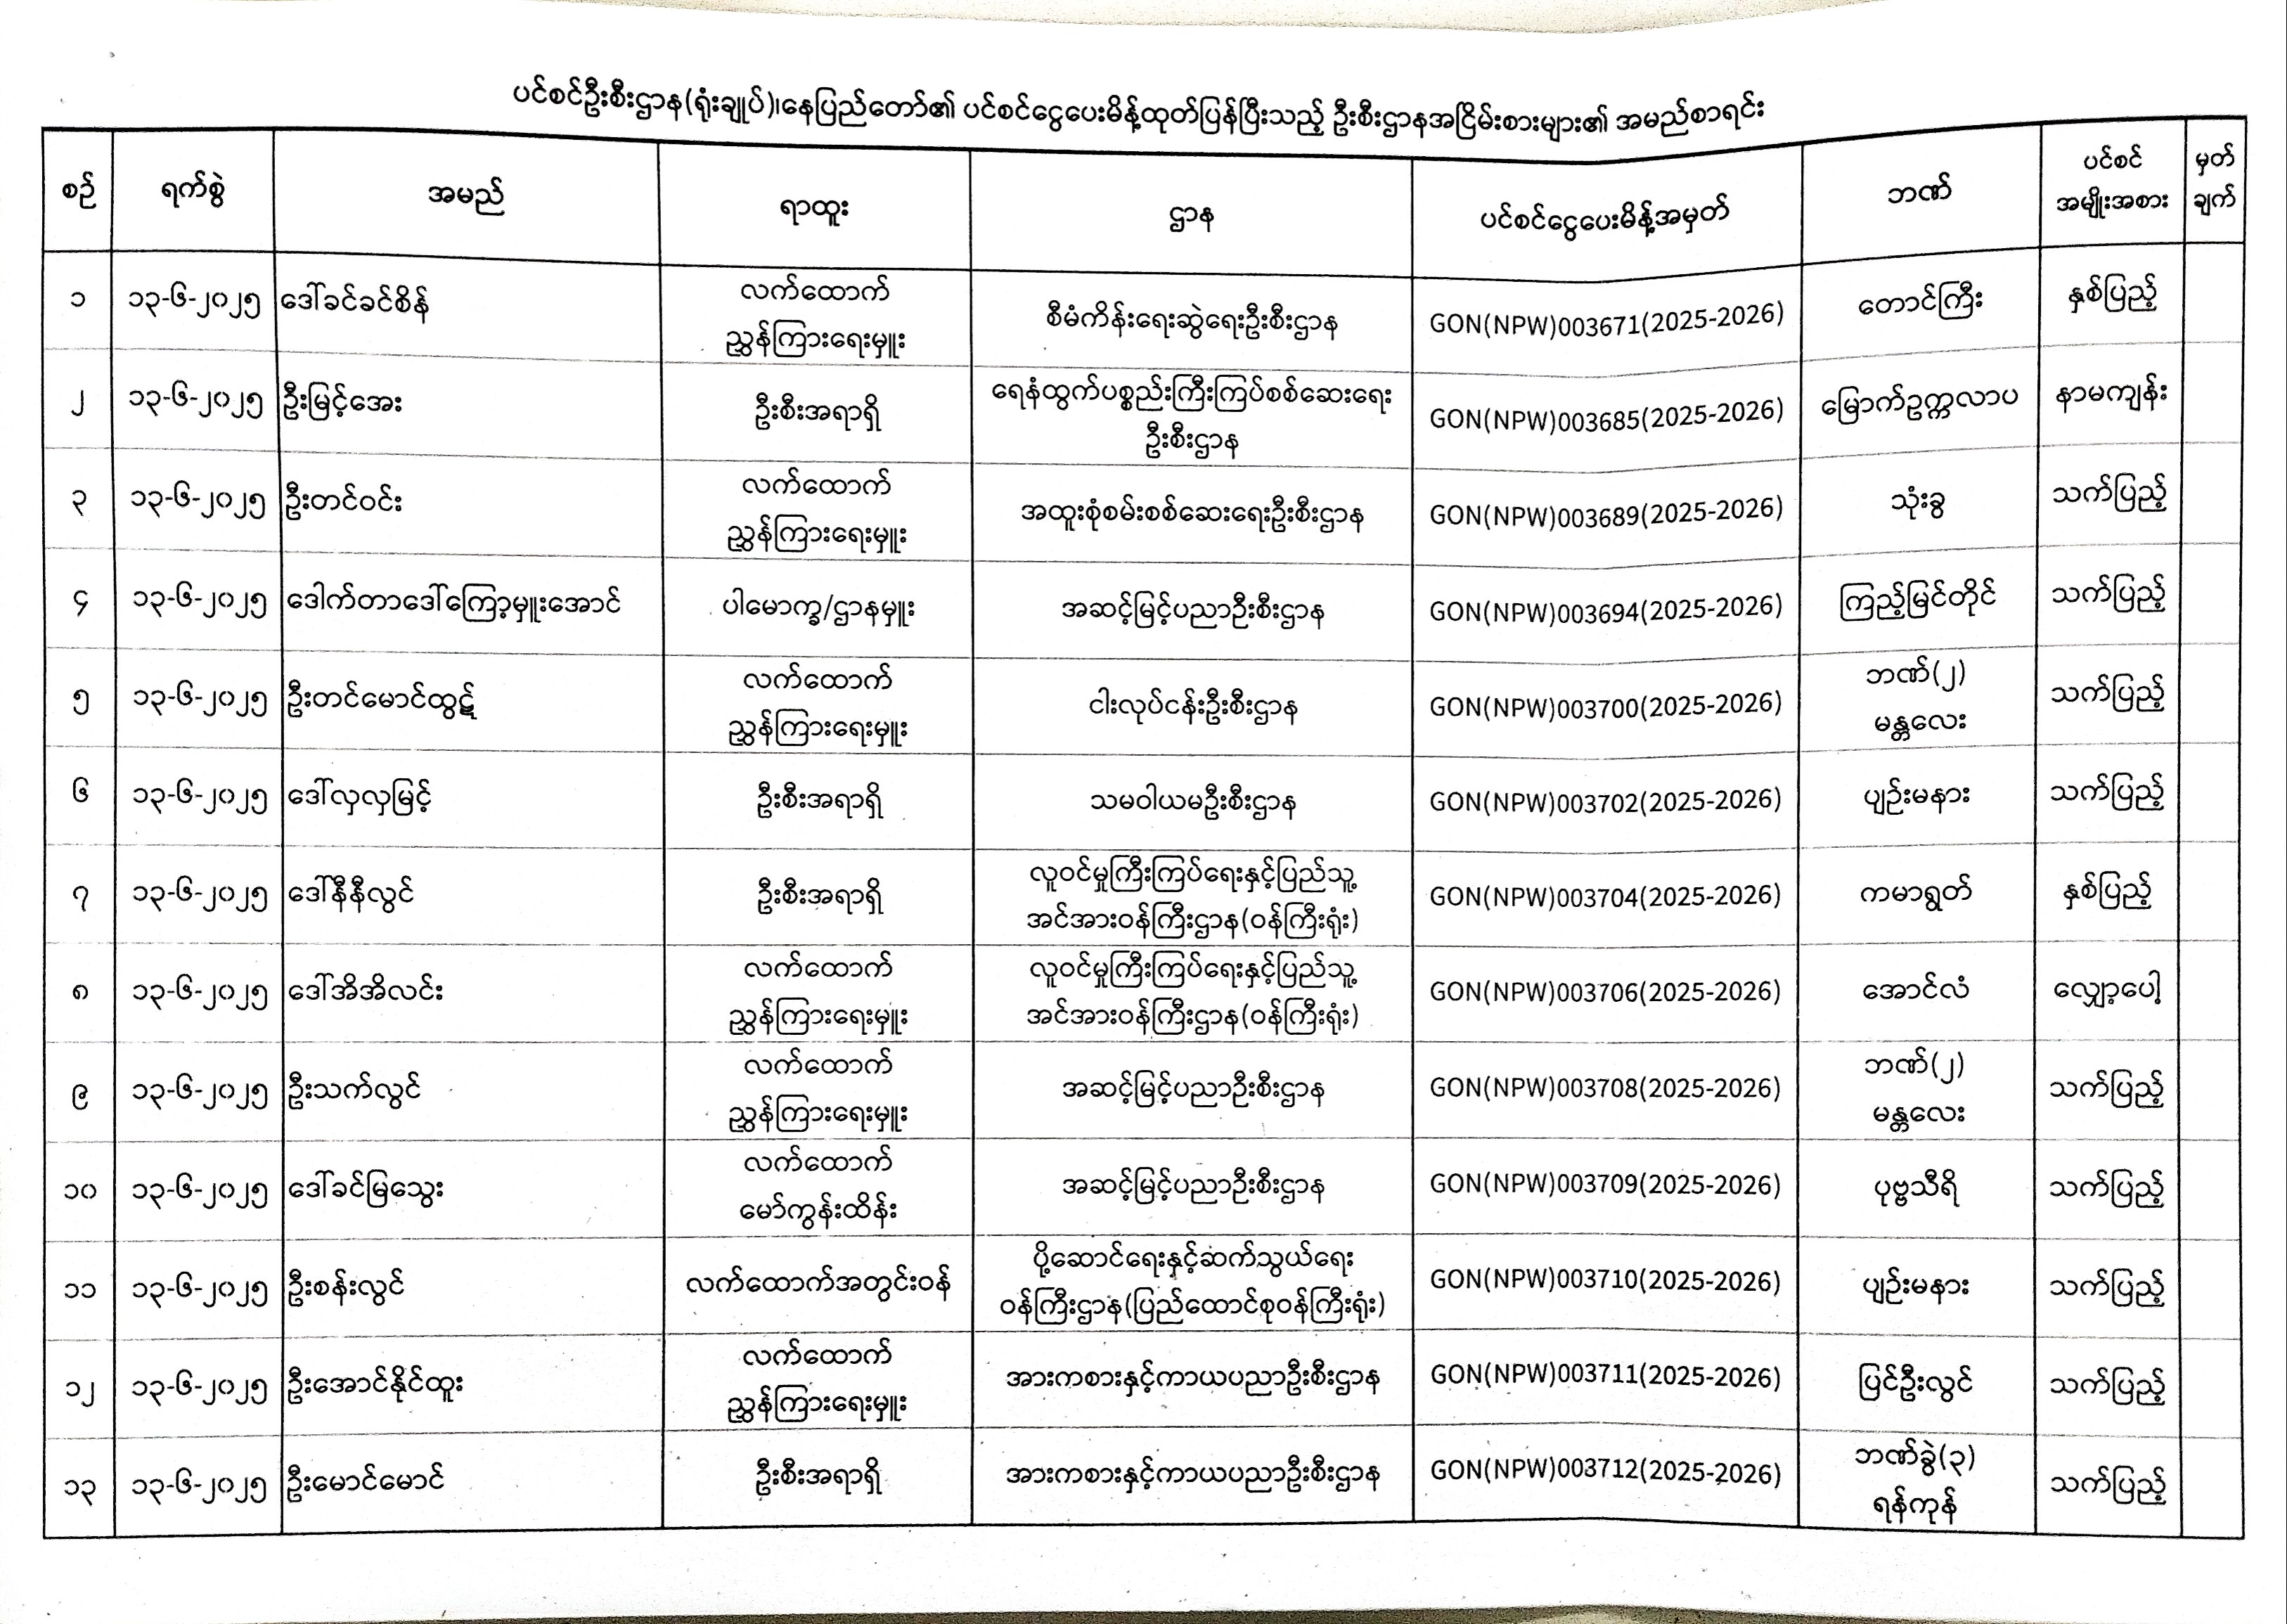 ပင်စင်ဦးစီးဌာန(ရုံးချုပ်)၊နေပြည်တော်၏ ပင်စင်ငွေပေးမိန့်ထုတ်ပြန်ပြီးသည့် ဦးစီးဌာနအငြိမ်းစားများ၏ အမည်စာရင်း
စဉ် ရက်စွဲ အမည် ရာထူး ဌာန ပင်စင်ငွေပေးမိန့်အမှတ် ဘဏ် ပင်စင် အမျိုးအစား မှတ် ချက်
၁ ၁၃-၆-၂၀၂၅ ဒေါ်ခင်ခင်စိန် လက်ထောက် ညွှန်ကြားရေးမှူး စီမံကိန်းရေးဆွဲရေးဦးစီးဌာန GON(NPW)003671(2025-2026) တောင်ကြီး နှစ်ပြည့်
၂ ၁၃-၆-၂၀၂၅ ဦးမြင့်အေး ဦးစီးအရာရှိ ရေနံထွက်ပစ္စည်းကြီးကြပ်စစ်ဆေးရေး ဦးစီးဌာန GON(NPW)003685(2025-2026) မြောက်ဥက္ကလာပ နာမကျန်း
၃ ၁၃-၆-၂၀၂၅ ဦးတင်ဝင်း လက်ထောက် ညွှန်ကြားရေးမှူး အထူးစုံစမ်းစစ်ဆေးရေးဦးစီးဌာန GON(NPW)003689(2025-2026) သုံးခွ သက်ပြည့်
၄ ၁၃-၆-၂၀၂၅ ဒေါက်တာဒေါ်ကြော့မှူးအောင် ပါမောက္ခ/ဌာနမှူး အဆင့်မြင့်ပညာဦးစီးဌာန GON(NPW)003694(2025-2026) ကြည့်မြင်တိုင် သက်ပြည့်
၅ ၁၃-၆-၂၀၂၅ ဦးတင်မောင်ထွဋ် လက်ထောက် ညွှန်ကြားရေးမှူး ငါးလုပ်ငန်းဦးစီးဌာန GON(NPW)003700(2025-2026) ဘဏ်(၂) မန္တလေး သက်ပြည့်
၆ ၁၃-၆-၂၀၂၅ ဒေါ်လှလှမြင့် ဦးစီးအရာရှိ သမဝါယမဦးစီးဌာန GON(NPW)003702(2025-2026) ပျဉ်းမနား သက်ပြည့်
၇ ၁၃-၆-၂၀၂၅ ဒေါ်နီနီလွင် ဦးစီးအရာရှိ လူဝင်မှုကြီးကြပ်ရေးနှင့်ပြည်သူ့ အင်အားဝန်ကြီးဌာန(ဝန်ကြီးရုံး) GON(NPW)003704(2025-2026) ကမာရွတ် နှစ်ပြည့်
၈ ၁၃-၆-၂၀၂၅ ဒေါ်အိအိလင်း လက်ထောက် ညွှန်ကြားရေးမှူး လူဝင်မှုကြီးကြပ်ရေးနှင့်ပြည်သူ့ အင်အားဝန်ကြီးဌာန(ဝန်ကြီးရုံး) GON(NPW)003706(2025-2026) အောင်လံ လျှော့ပေါ့
၉ ၁၃-၆-၂၀၂၅ ဦးသက်လွင် လက်ထောက် ညွှန်ကြားရေးမှူး အဆင့်မြင့်ပညာဦးစီးဌာန GON(NPW)003708(2025-2026) ဘဏ်(၂) မန္တလေး သက်ပြည့်
၁၀ ၁၃-၆-၂၀၂၅ ဒေါ်ခင်မြသွေး လက်ထောက် မော်ကွန်းထိန်း အဆင့်မြင့်ပညာဦးစီးဌာန GON(NPW)003709(2025-2026) ပုဗ္ဗသီရိ သက်ပြည့်
၁၁ ၁၃-၆-၂၀၂၅ ဦးစန်းလွင် လက်ထောက်အတွင်းဝန် ပို့ဆောင်ရေးနှင့်ဆက်သွယ်ရေး ဝန်ကြီးဌာန(ပြည်ထောင်စုဝန်ကြီးရုံး) GON(NPW)003710(2025-2026) ပျဉ်းမနား သက်ပြည့်
၁၂ ၁၃-၆-၂၀၂၅ ဦးအောင်နိုင်ထူး လက်ထောက် ညွှန်ကြားရေးမှူး အားကစားနှင့်ကာယပညာဦးစီးဌာန GON(NPW)003711(2025-2026) ပြင်ဦးလွင် သက်ပြည့်
၁၃ ၁၃-၆-၂၀၂၅ ဦးမောင်မောင် ဦးစီးအရာရှိ အားကစားနှင့်ကာယပညာဦးစီးဌာန GON(NPW)003712(2025-2026) ဘဏ်ခွဲ(၃) ရန်ကုန် သက်ပြည့်